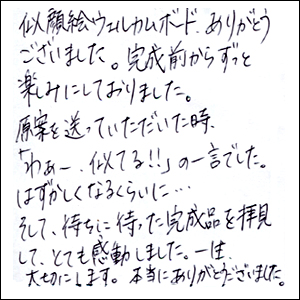 似顔絵ウェルカムボード、ありがとう
ございました。完成前からずっと
楽しみにしておりました。
原案を送っていただいた時、
「わぁー、似てる!!」の一言でした。
はずかしくなるくらいに…
そして、待ちに待った完成品を拝見
して、とても感動しました。一生
大切にします。本当にありがとうございました。